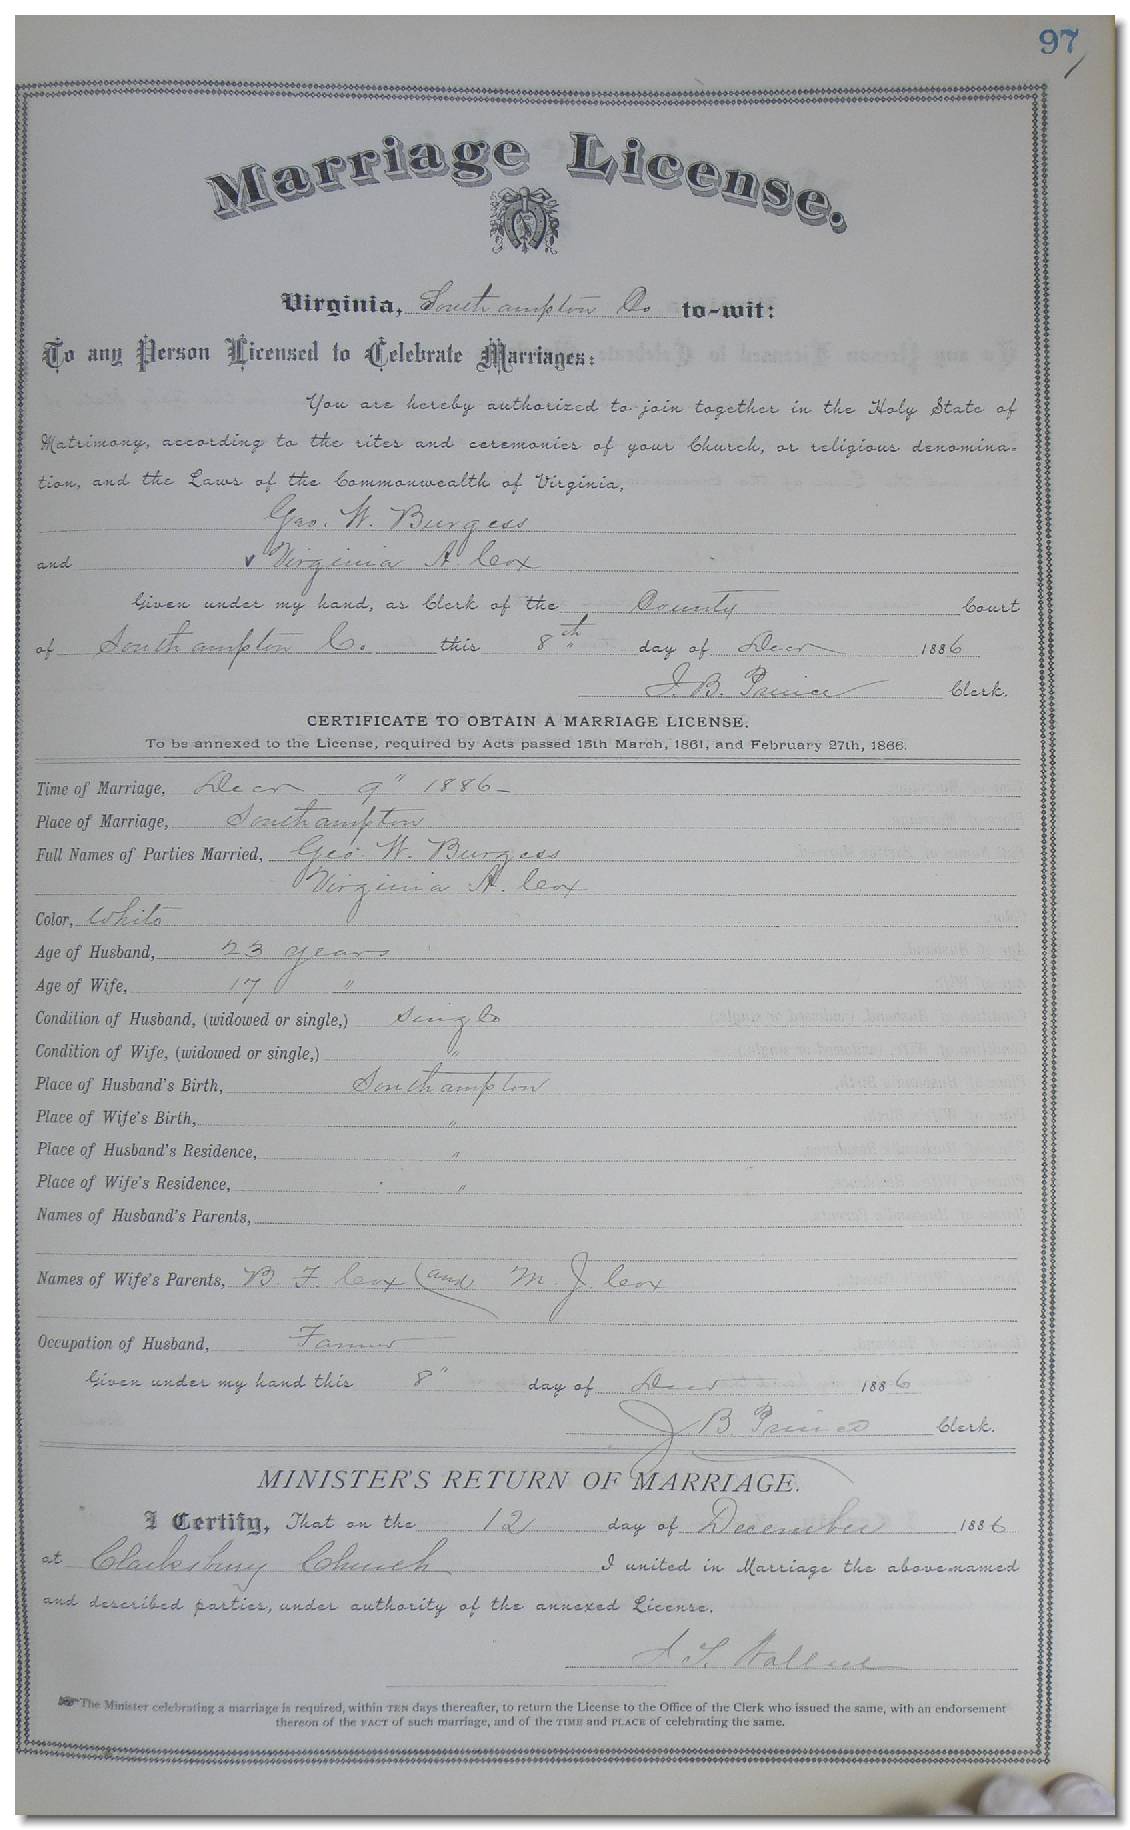 97
Marriage License.
Virginia, Southampton Co to-wit:
To any Person Licensed to Celebrate Marriages:
You are hereby authorized to join together in the Holy State of
Matrimony, according to the rites and ceremonies of your Church, or religious denomina-
tion, and the Laws of the Commonwealth of Virginia,
Geo. W. Burgess
and Virginia A. Cox
Given under my hand, as Clerk of the County Court
of Southampton Co. this 8th day of Decr 1886
J. B. Prince Clerk.
CERTIFICATE TO OBTAIN A MARRIAGE LICENSE.
To be annexed to the License, required by Acts passed 15th March, 1861, and February 27th, 1866.
Time of Marriage, Decr 9" 1886-
Place of Marriage, Southampton
Full Names of Parties Married, Geo. W. Burgess
Virginia A. Cox
Color, White
Age of Husband, 23 years
Age of Wife, 17 "
Condition of Husband, (widowed or single,) Single
Condition of Wife, (widowed or single,) "
Place of Husband's Birth, Southampton
Place of Wife's Birth, "
Place of Husband's Residence, "
Place of Wife's Residence, "
Names of Husband's Parents,
Names of Wife's Parents, B. F. Cox and M. J. Cox
Occupation of Husband, Farmer
Given under my hand this 8" day of Decr 1886
J. B. Prince Clerk.
MINISTER'S RETURN OF MARRIAGE.
I Certify, That on the 12 day of December 1886
at Clarksbury Church I united in Marriage the above-named
and described parties, under authority of the annexed License.
The Minister celebrating a marriage is required, within TEN days thereafter, to return the License to the Office of the Clerk who issued the same, with an endorsement
thereon of the FACT of such marriage, and of the TIME and PLACE of celebrating the same.